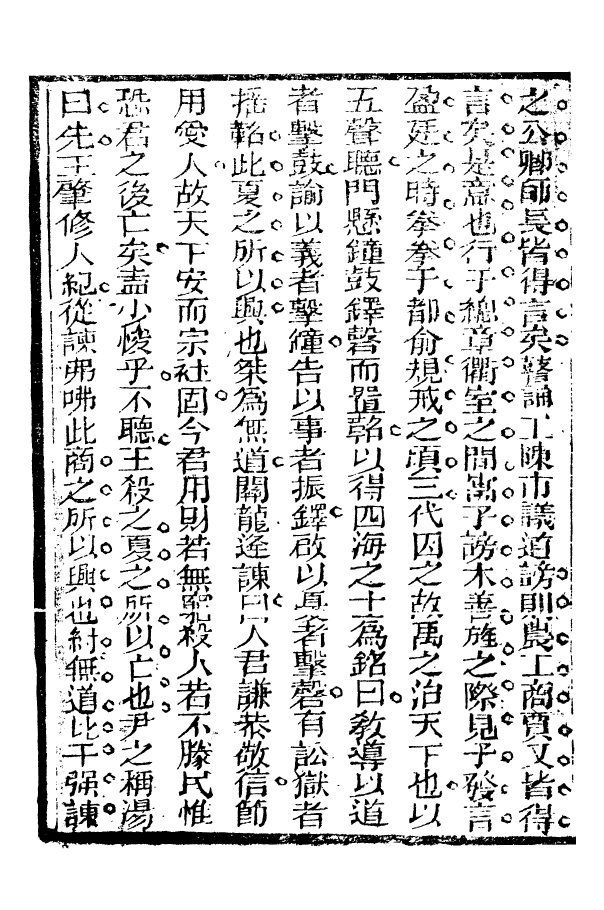 之公卿師長皆得言矣瞽誦工陳市議道謗則農工商賈又皆得
言矣是意也行于總章衢室之間寓于謗木善旌之際見于發言
盈廷之時拳拳于都俞規戒之頃三代因之故禹之治天下也以
五聲聽門懸鐘鼓鐸磬而置鞀以得四海之士為銘曰教導以道
者擊鼓諭以義者擊鐘告以事者振鐸啟以憂者擊磬有訟獄者
揺鞀此夏之所以興也桀為無道關龍逄諫曰人君謙恭敬信節
用愛人故天下安而宗社固今君用財若無窮殺人若不勝民惟
恐君之後亡矣盍少悛乎不聽王殺之夏之所以亡也尹之稱湯
曰先王肇修人紀從諫弗咈此商之所以興也紂無道比干强諫